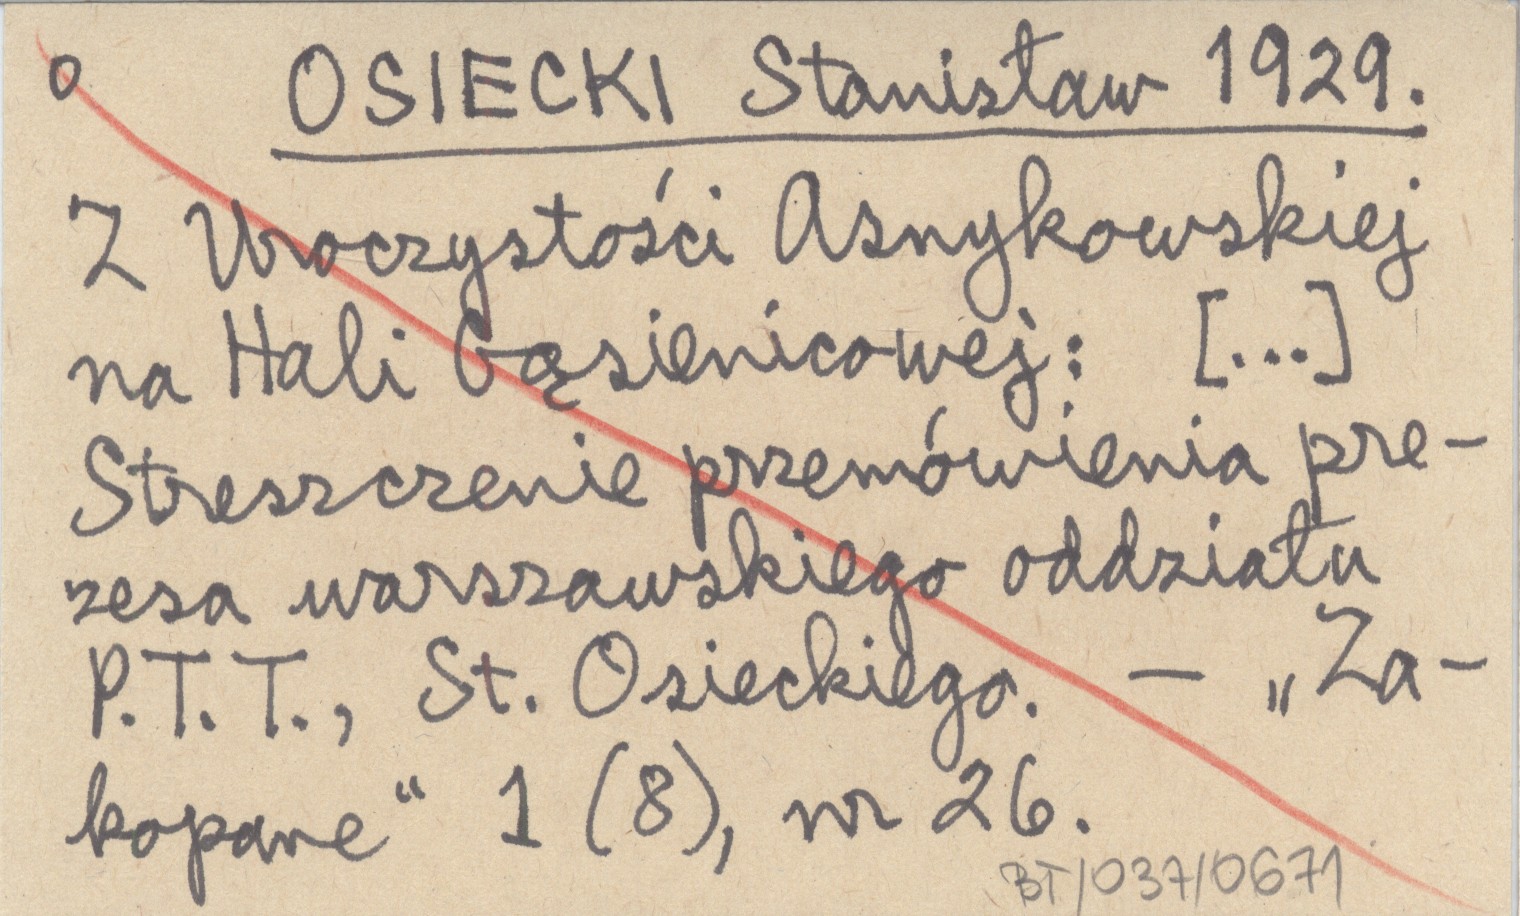 o OSIECKI Stanisław 1929.
Z Uroczystości Asnykowskiej
na Hali Gąsienicowej: [...]
Streszczenie przemówienia pre-
zesa warszawskiego oddziału
P.T.T., St. Osieckiego. — „Za-
kopane“ 1 (8), nr 26.
BT/037/0671